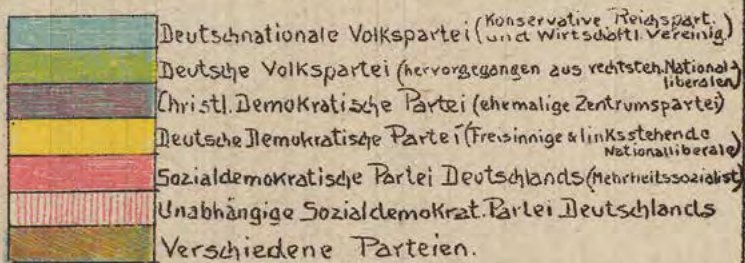 Deutschnationale Volkspartei (Konservative, Reichspart. und Wirtschaftl. Vereinig.)
Deutsche Volkspartei (hervorgegangen aus rechtsteh. Nationalliberalen)
Christl. Demokratische Partei (ehemalige Zentrumspartei)
Deutsche Demokratische Partei (Freisinnige & linksstehende Nationalliberale)
Sozialdemokratische Partei Deutschlands (Mehrheitssozialist)
Unabhängige Sozialdemokrat. Partei Deutschlands
Verschiedene Parteien.